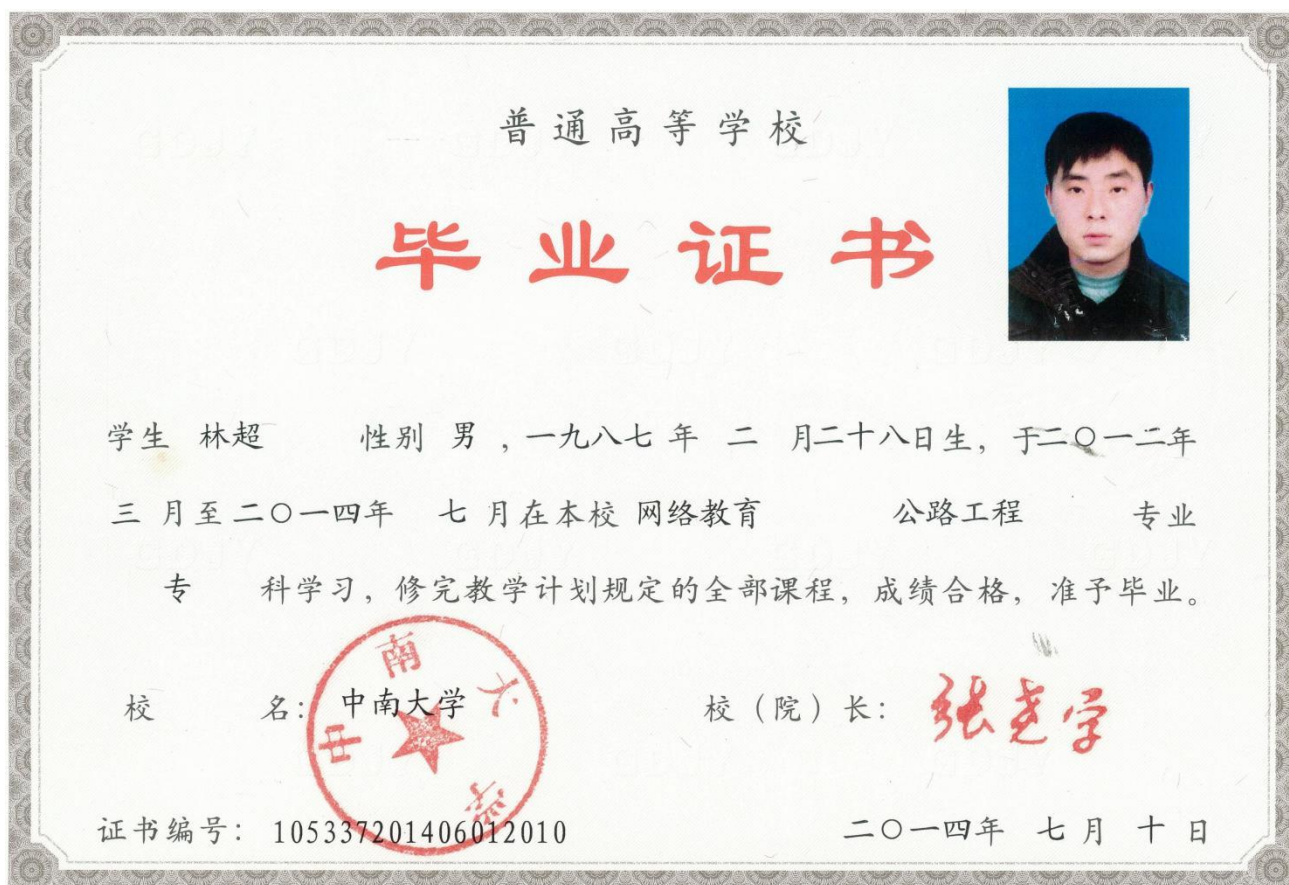 普通高等学校
毕业证书
学生 林超 性别 男 ,一九八七 年 二 月二十八日生, 于二〇一二年
三 月至二〇一四年 七 月在本校 网络教育 公路工程 专业
专 科学习, 修完教学计划规定的全部课程, 成绩合格, 准予毕业。
校 名: 中南大学 校(院)长: 张尧学
中南大学
证书编号: 105337201406012010 二〇一四年 七 月 十 日